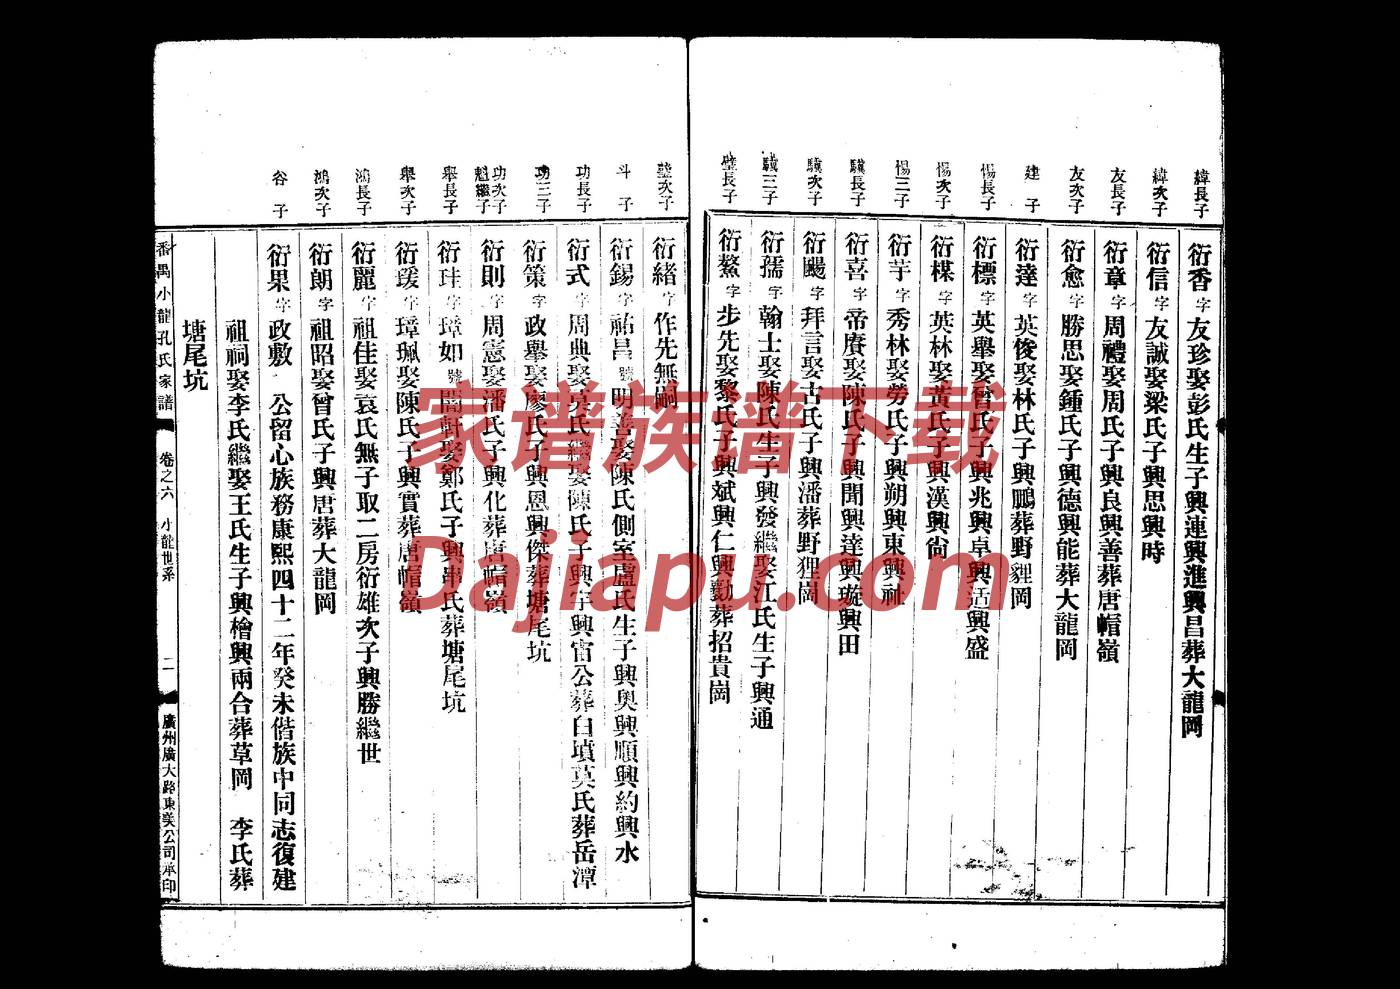 緯長子
衍香字友珍娶彭氏生子興連興進興昌葬大龍岡
緯次子
衍信字友誠娶梁氏子興思興時
友長子
衍章字周禮娶周氏子興良興善葬唐帽嶺
友次子
衍愈字勝思娶鍾氏子興德興能葬大龍岡
建子
衍達字英俊娶林氏子興鵬葬野貍岡
惕長子
衍標字英舉娶曾氏子興兆興卓興适興盛
惕次子
衍楳字英林娶黃氏子興漢興尙
惕三子
衍芋字秀林娶勞氏子興朔興東興社
驥長子
衍喜字帝賡娶陳氏子興聞興達興璇興田
驥次子
衍颺字拜言娶古氏子興潘葬野狸崗
驥三子
衍孺字翰士娶陳氏生子興發繼娶江氏生子興通
璧長子
衍鰲字步先娶黎氏子興斌興仁興勷葬招貴崗
璧次子
衍緒字作先無嗣
斗子
衍錫字祐昌號明善娶陳氏側室盧氏生子興奥興順興約興水
功長子
衍式字周典娶莫氏繼娶陳氏子興宇興宙公葬白墳莫氏葬岳潭
功三子
衍策字政舉娶廖氏子興恩興傑葬塘尾坑
功次子魁繼子
衍則字周憲娶潘氏子興化葬唐帽嶺
舉長子
衍珪字璋如號闇軒娶鄭氏子興串氏葬塘尾坑
舉次子
衍瑗字璋珮娶陳氏子興實葬唐帽嶺
鴻長子
衍麗字祖佳娶袁氏無子取二房衍雄次子興勝繼世
鴻次子
衍朗字祖昭娶曾氏子興唐葬大龍岡
谷子
衍果字政敷 公留心族務康熙四十二年癸未偕族中同志復建
祖祠娶李氏繼娶王氏生子興檜興兩合葬草岡 李氏葬
塘尾坑
番禺小龍孔氏家譜 卷之六 小龍世系 二 廣州廣大路東美公司承印
家谱族谱下载
Dajiapu.com